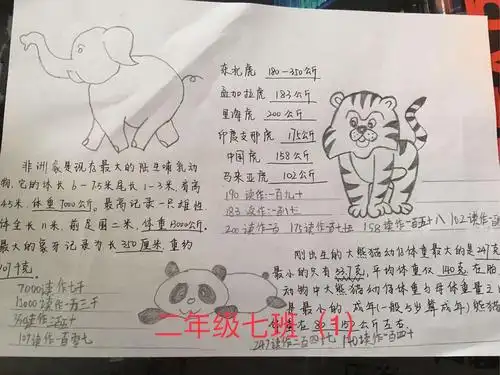 东北虎 180-350公斤
孟加拉虎 183公斤
里海虎 200公斤
印度支那虎 175公斤
中国虎 158公斤
马来亚虎 102公斤
190 读作:一百九十
183 读作:一八七
200 读作:二百 175 读作一百七十五 158 读作一百五十八 102 读作
非洲象是现存最大的陆生哺乳动
物,它的体长6-7.5米尾长1-3米,肩高
4米,体重7000公斤,最高记录一只雄性
体全长11米,前足围二米,体重13000公斤
最大的象牙记录为长350厘米,重约
107千克。
7000读作七千
13000读作一万三千
350读作三百五十
107读作一百零七
刚出生的大熊猫幼仔体重最大的是247克
最小的只有53.7克,平均体重仅140克在胎
动物中大熊猫幼仔体重为母体重量之
是最小的,成年(一般5岁算成年)熊猫
体重在80-150公斤左右。
247读作二百四十七 140读作一百四十
二年级七班(1)